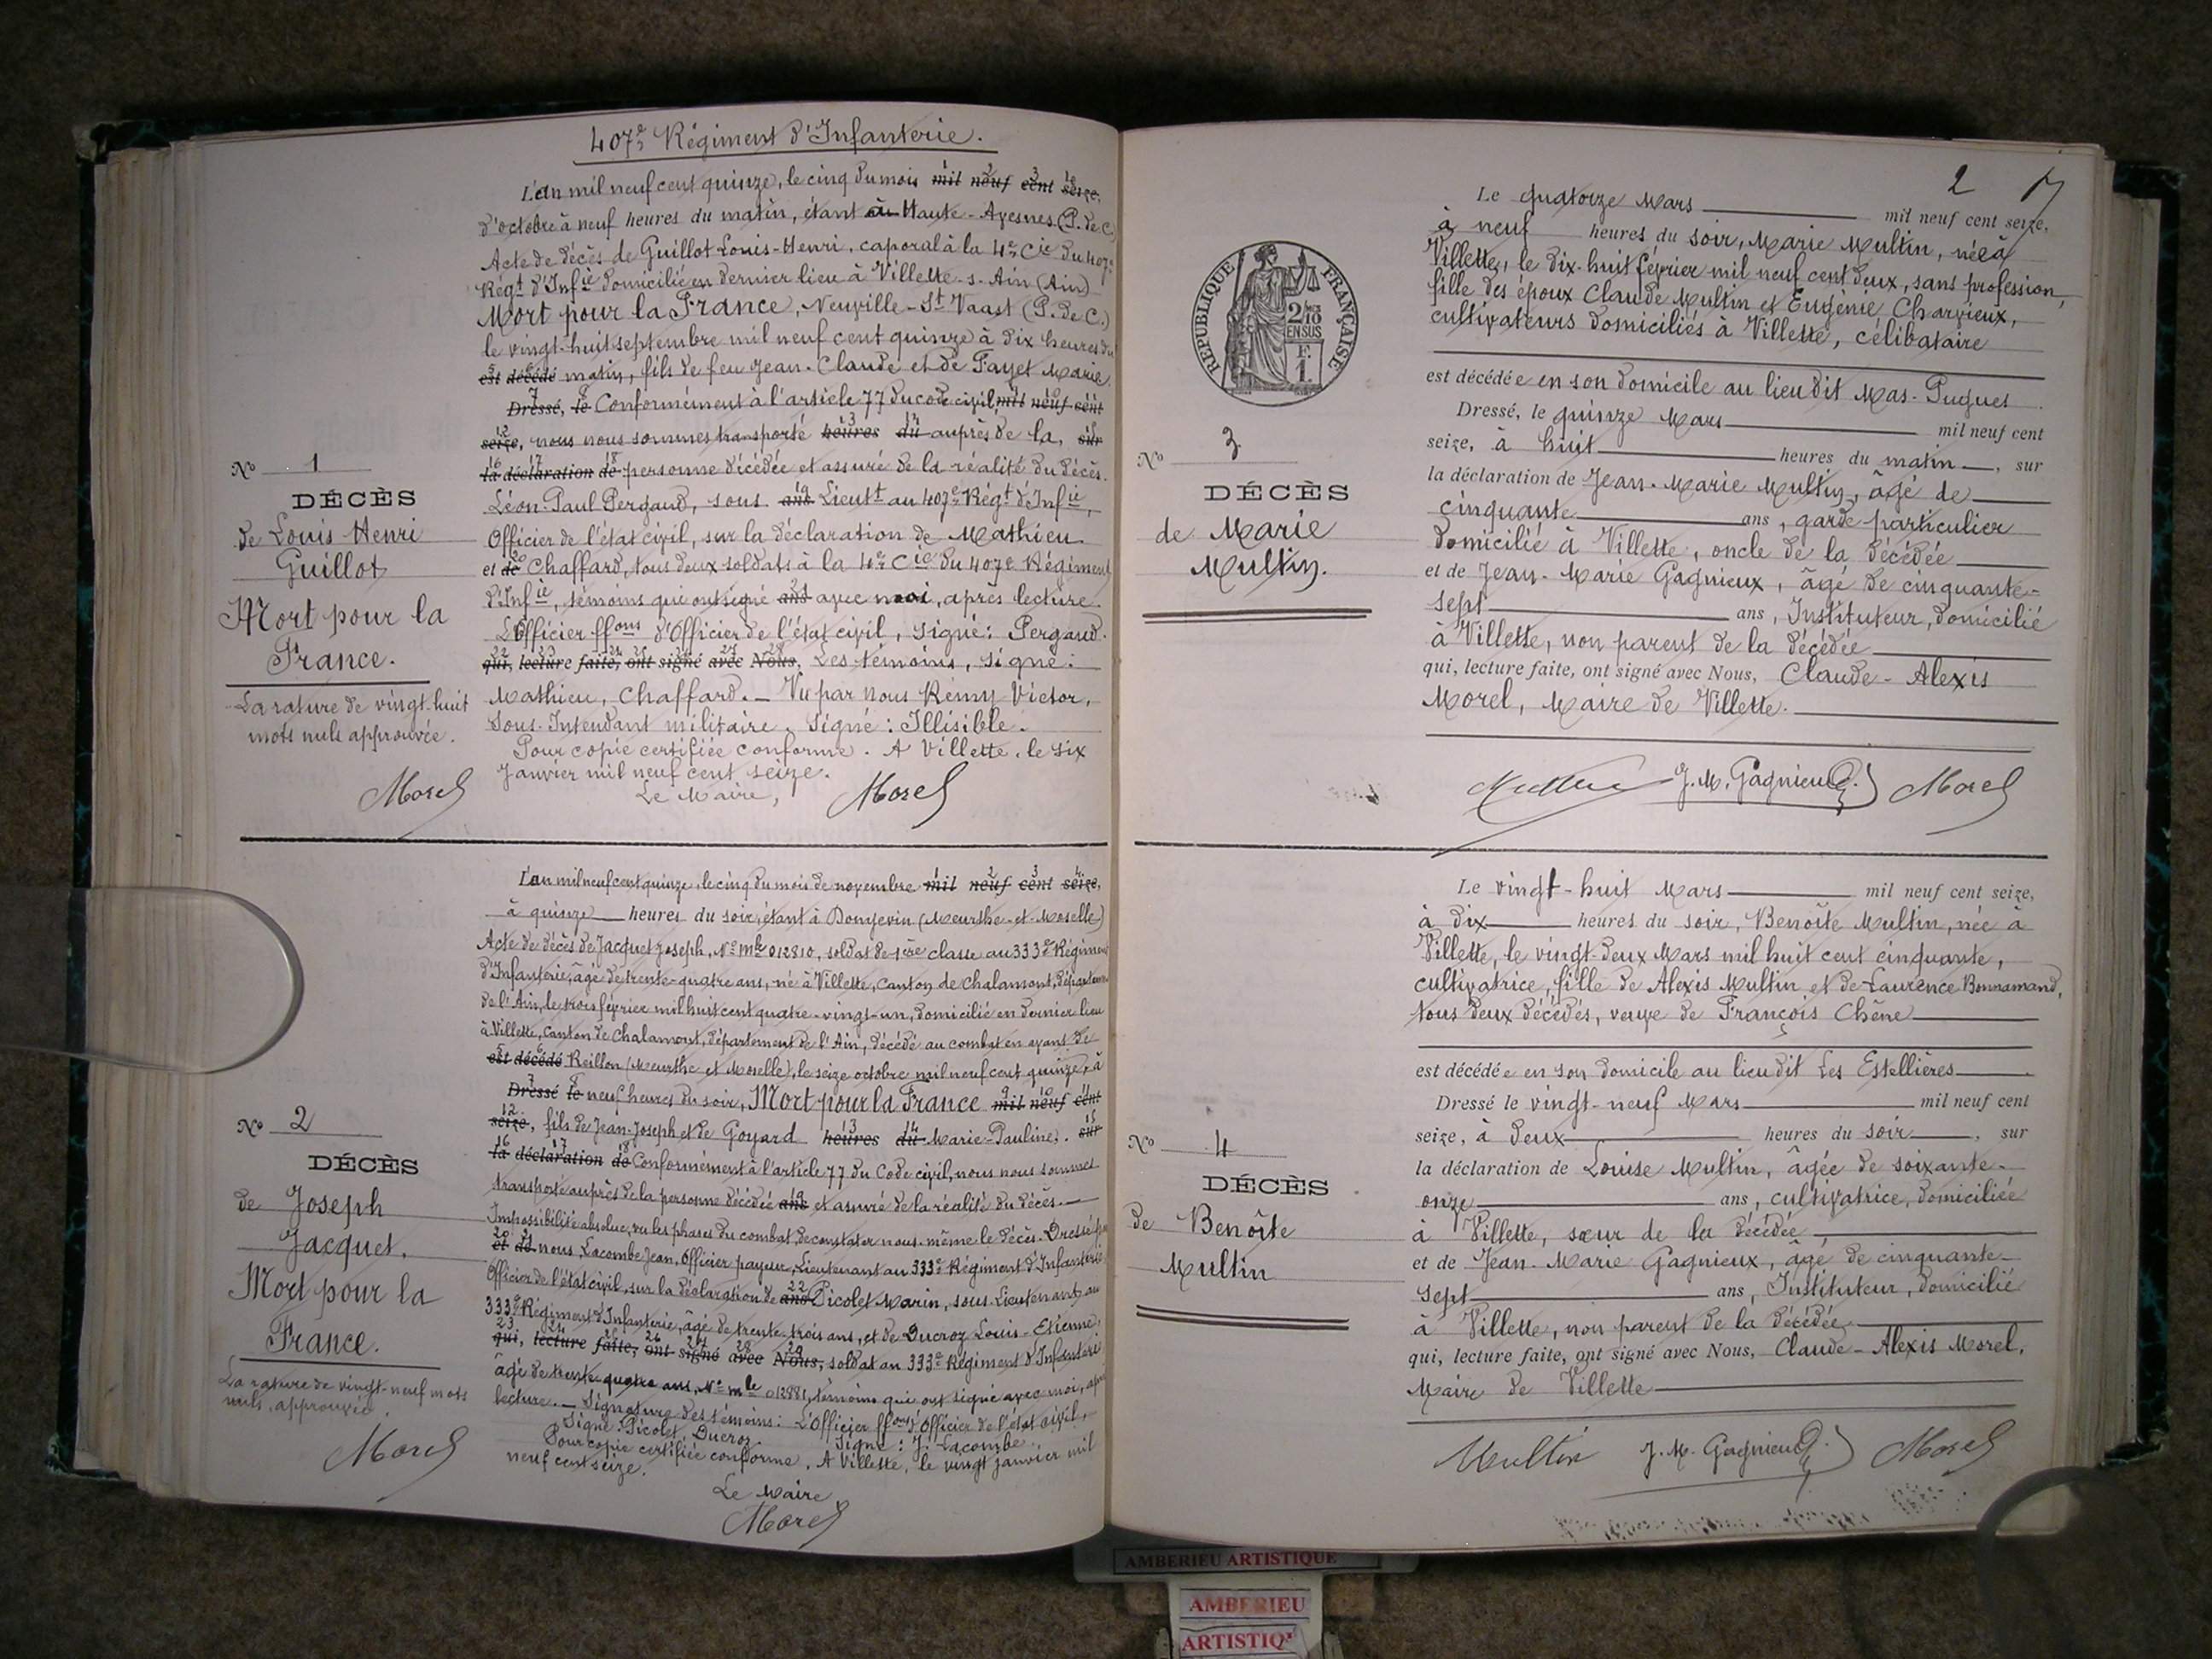 407e Régiment d'Infanterie.
L'an mil neuf cent quinze, le cinq du mois mil neuf cent seize,
d'octobre à neuf heures du matin, étant à Haute-Avesnes (P. de C.)
Acte de décès de Guillot Louis-Henri, caporal à la 4e Cie du 407e
Régt d'Infie domicilié en dernier lieu à Villette-s-Ain (Ain)
Mort pour la France, Neuville-St Vaast (P. de C.)
le vingt-huit septembre mil neuf cent quinze à dix heures du
est décédé matin, fils de feu Jean-Claude et de Fayet Marie.
Dressé, le Conformément à l'article 77 du code civil mil neuf cent
seize, nous nous sommes transporté heures du auprès de la, sur
la déclaration de personne décédée et assuré de la réalité du décès.
Léon-Paul Pergaud, sous ans Lieutt au 407e Régt d'Infie,
Officier de l'état civil, sur la déclaration de Mathieu
et de Chaffard, tous deux soldats à la 4e Cie du 407e Régiment
d'Infie, témoins qui ont signé ans avec moi, après lecture.
L'Officier ffons d'Officier de l'état civil, signé: Pergaud.
qui, lecture faite, ont signé avec Nous, Les témoins, signé:
Mathieu, Chaffard. — Vu par nous Rémy Victor,
Sous-Intendant militaire. Signé: Illisible.
Pour copie certifiée conforme. A Villette, le six
Janvier mil neuf cent seize.
Le Maire,
Morel
No 1
DÉCÈS
de Louis Henri
Guillot
Mort pour la
France.
La rature de vingt-huit
mots nuls approuvée.
Morel
L'an mil neuf cent quinze, le cinq du mois de novembre mil neuf cent seize,
à quinze heures du soir, étant à Domjevin (Meurthe-et-Moselle)
Acte de décès de Jacquet Joseph, No Mle 012810, soldat de 1ère classe au 333e Régiment
d'Infanterie, âgé de trente-quatre ans, né à Villette, canton de Chalamont, département
de l'Ain, le trois février mil huit cent quatre-vingt-un, domicilié en dernier lieu
à Villette, canton de Chalamont, département de l'Ain, décédé au combat en avant de
est décédé Reillon (Meurthe et Moselle), le seize octobre mil neuf cent quinze, à
Dressé le neuf heures du soir, Mort pour la France mil neuf cent
seize, fils de Jean-Joseph et de Goyard heures du Marie-Pauline. sur
la déclaration de Conformément à l'article 77 du Code civil, nous nous sommes
transporté auprès de la personne décédée ans et assuré de la réalité du décès. —
Impossibilité absolue, vu les phases du combat, de constater nous-même le décès. Dressé par
et de nous, Lacombe Jean, Officier payeur, Lieutenant au 333e Régiment d'Infanterie
Officier de l'état civil, sur la déclaration de ans Picolet Marin, sous-lieutenant au
333e Régiment d'Infanterie, âgé de trente-trois ans, et de Ducroz Louis-Etienne,
qui, lecture faite, ont signé avec Nous, soldat au 333e Régiment d'Infanterie
âgé de trente-quatre ans, No mle 012981, témoins qui ont signé avec moi, après
lecture. — Signature des témoins: L'Officier ffons d'Officier de l'état civil,
Signé: Picolet, Ducroz Signé: J. Lacombe.
Pour copie certifiée conforme. A Villette, le vingt janvier mil
neuf cent seize.
Le Maire
Morel
No 2
DÉCÈS
de Joseph
Jacquet.
Mort pour la
France.
La rature de vingt-neuf mots
nuls, approuvée.
Morel
2
Le quatorze Mars mil neuf cent seize,
à neuf heures du soir, Marie Multin, née à
Villette, le dix-huit février mil neuf cent deux, sans profession,
fille des époux Claude Multin et Eugénie Charvieux,
cultivateurs domiciliés à Villette, célibataire
est décédée en son domicile au lieu dit Mas-Puguet
Dressé, le quinze Mars mil neuf cent
seize, à huit heures du matin, sur
la déclaration de Jean-Marie Multin, âgé de
cinquante ans, garde-particulier
domicilié à Villette, oncle de la décédée
et de Jean-Marie Gagnieux, âgé de cinquante-
sept ans, Instituteur, domicilié
à Villette, non parent de la décédée
qui, lecture faite, ont signé avec Nous, Claude-Alexis
Morel, Maire de Villette.
Multin J. M. Gagnieux Morel
RÉPUBLIQUE FRANÇAISE
2/10
EN SUS
F.
1.
No 3
DÉCÈS
de Marie
Multin.
Le vingt-huit Mars mil neuf cent seize,
à dix heures du soir, Benoîte Multin, née à
Villette, le vingt-deux Mars mil huit cent cinquante,
cultivatrice, fille de Alexis Multin et de Laurence Bonnamand,
tous deux décédés, veuve de François Chêne
est décédée en son domicile au lieu dit Les Estellières
Dressé le vingt-neuf Mars mil neuf cent
seize, à deux heures du soir, sur
la déclaration de Louise Multin, âgée de soixante-
onze ans, cultivatrice, domiciliée
à Villette, sœur de la décédée
et de Jean-Marie Gagnieux, âgé de cinquante-
sept ans, Instituteur, domicilié
à Villette, non parent de la décédée
qui, lecture faite, ont signé avec Nous, Claude-Alexis Morel,
Maire de Villette
Multin J. M. Gagnieux Morel
No 4
DÉCÈS
de Benoîte
Multin
AMBERIEU ARTISTIQUE
AMBERIEU
ARTISTIQ